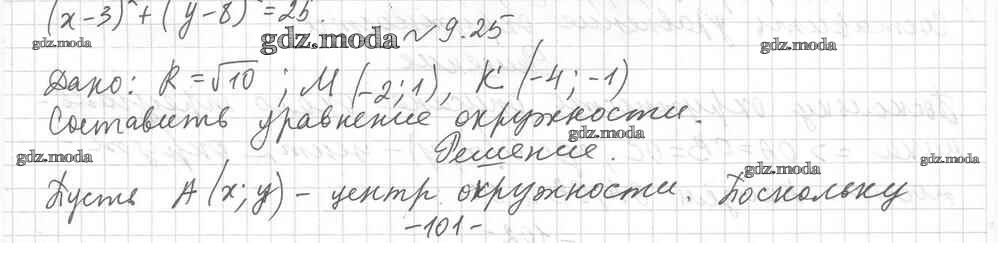 (x-3)² + (y-8)² = 25.
gdz.moda gdz.moda № 9.25 gdz.moda
Дано: R = √10 ; M (-2; 1), K (-4; -1)
Составить уравнение окружности.
gdz.moda
gdz.moda Решение. gdz.moda gdz.moda
Пусть A (x; y) - центр окружности. Поскольку
-101-